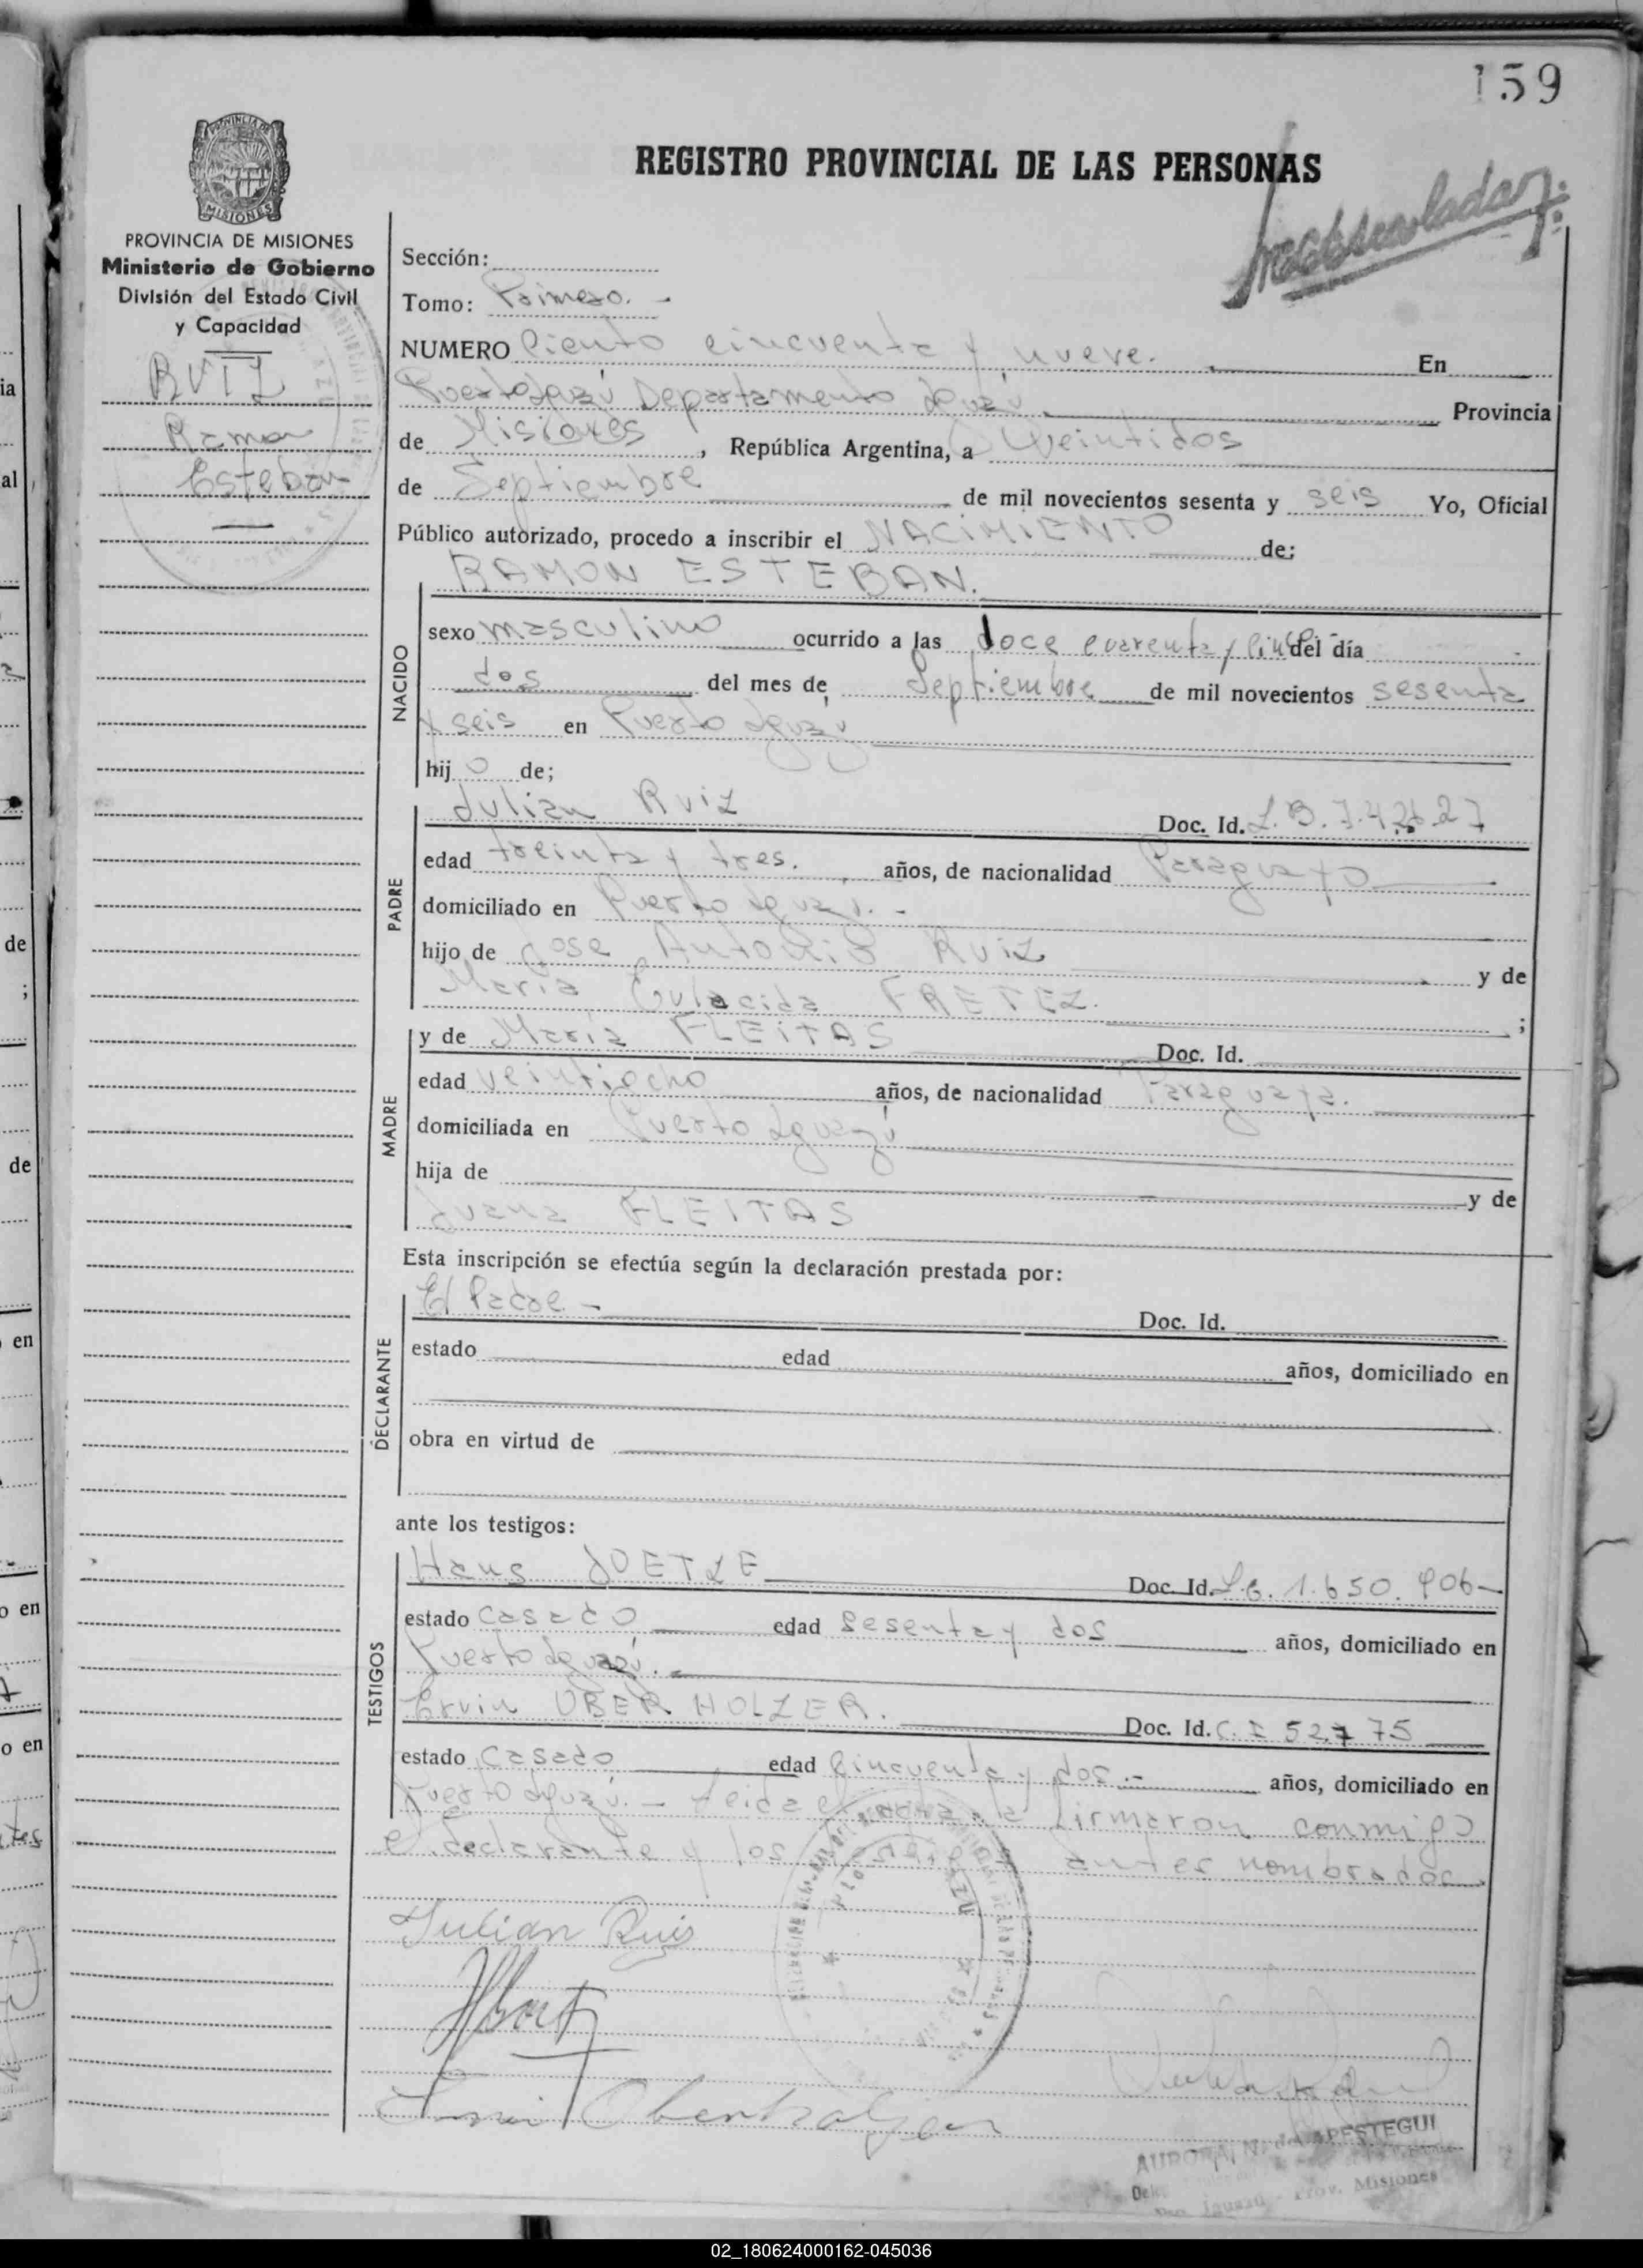 159
REGISTRO PROVINCIAL DE LAS PERSONAS
PROVINCIA DE MISIONES
Ministerio de Gobierno
División del Estado Civil
y Capacidad
RUIZ
Ramon
Esteban
Sección:
Tomo: Primero. -
NUMERO Ciento cincuenta y nueve. En
Puerto Iguazú Departamento Iguazú Provincia
de Misiones, República Argentina, a Veintidos
de Septiembre de mil novecientos sesenta y seis Yo, Oficial
Público autorizado, procedo a inscribir el NACIMIENTO de;
RAMON ESTEBAN.
NACIDO
sexo masculino ocurrido a las doce cuarenta y cinco del día
dos del mes de Septiembre de mil novecientos sesenta
y seis en Puerto Iguazu
hijo de;
PADRE
Julian Ruiz Doc. Id.
edad treinta y tres. años, de nacionalidad Paraguayo
domiciliado en Puerto Iguazú. -
hijo de Jose Antonio Ruiz y de
Maria FRETEZ. ;
MADRE
y de Maria FLEITAS Doc. Id.
edad veintiocho años, de nacionalidad Paraguaya.
domiciliada en Puerto Iguazú
hija de y de
Juana FLEITAS
Esta inscripción se efectúa según la declaración prestada por:
DECLARANTE
El Padre - Doc. Id.
estado edad años, domiciliado en
obra en virtud de
ante los testigos:
TESTIGOS
Hans Doc. Id. 1.650.906-
estado casado edad sesenta y dos años, domiciliado en
Puerto Iguazú.
Ervin OBERHOLZER. Doc. Id. C.I 52775
estado casado edad cincuenta y dos.- años, domiciliado en
Puerto Iguazú. - Leida el acta, la firmaron conmigo
el declarante y los testigos antes nombrados.
Julian Ruis
AURORA N. de APESTEGUI
Iguazú - Prov. Misiones
02_180624000162-045036